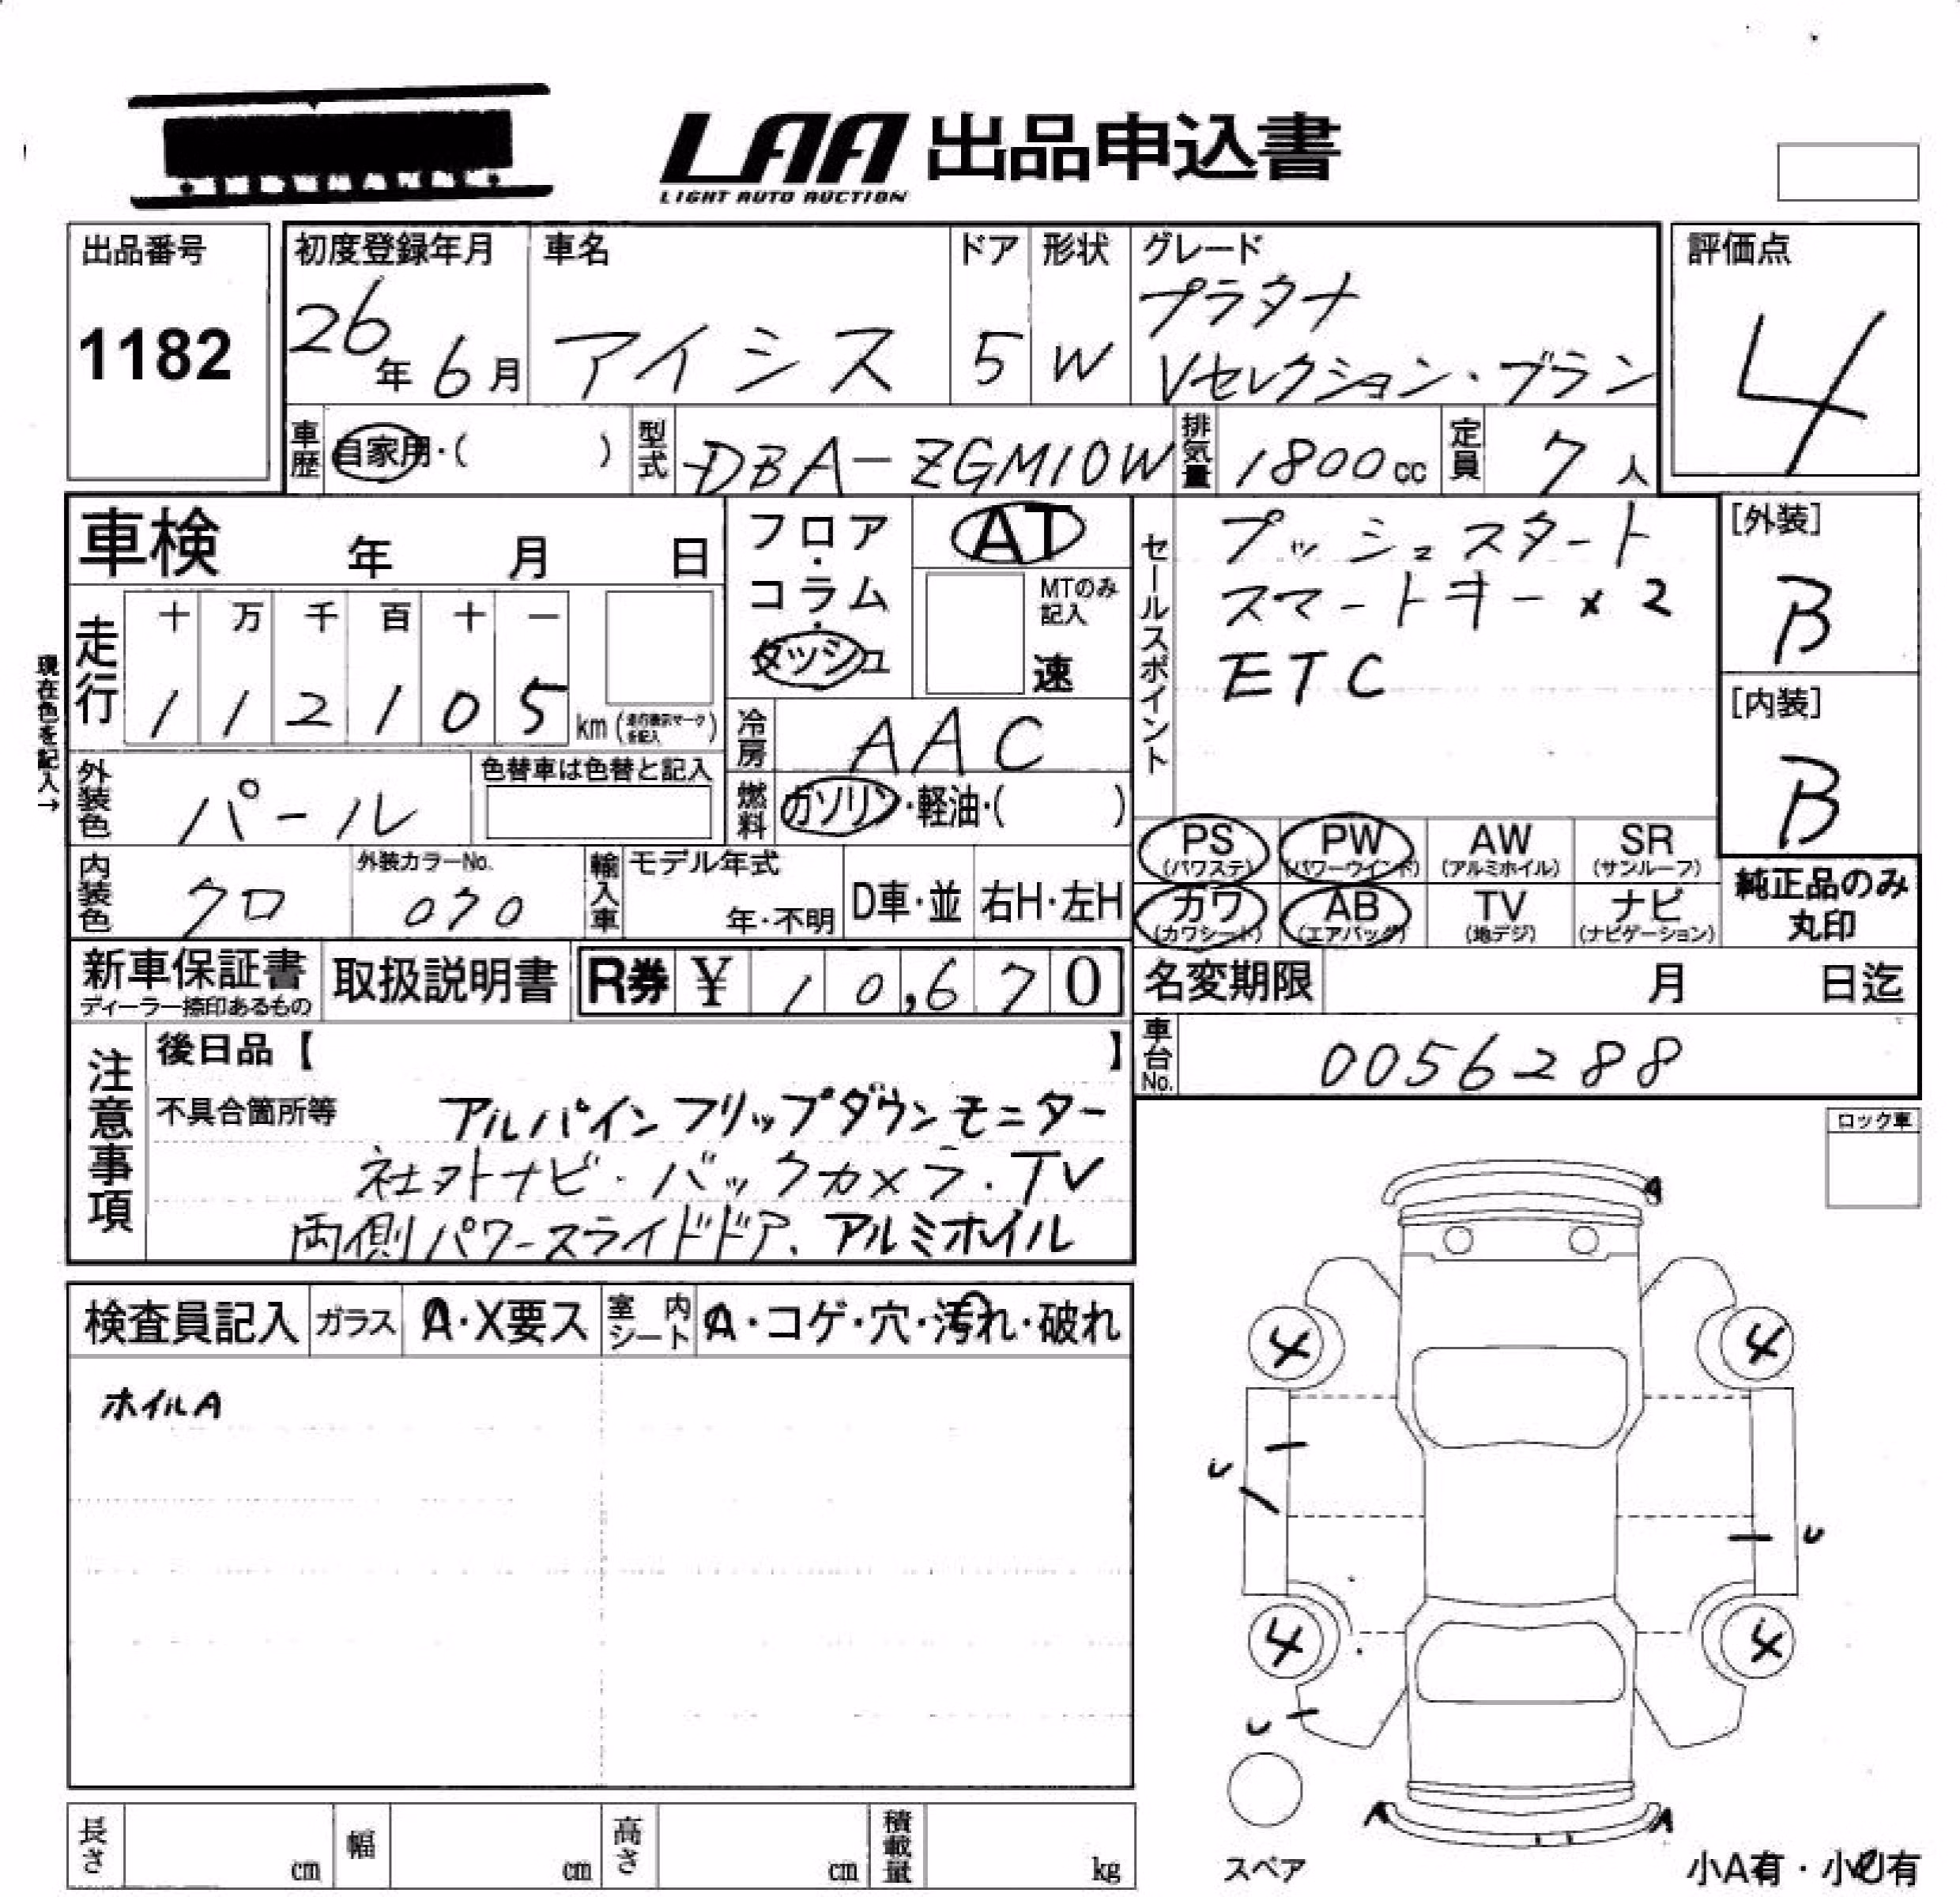 LAA 出品申込書
LIGHT AUTO AUCTION
出品番号
1182
初度登録年月
26年6月
車名
アイシス
ドア
5
形状
W
グレード
プラタナ
Vセレクション・ブラン
評価点
4
車歴
自家用・( )
型式
DBA-ZGM10W
排気量
1800cc
定員
7人
車検 年 月 日
フロア・コラム・ダッシュ
AT
MTのみ記入
速
セールスポイント
プッシュスタート
スマートキー×2
ETC
[外装]
B
[内装]
B
現在色を記入→
走行
十 万 千 百 十 一
1 1 2 1 0 5
km
冷房
AAC
外装色
パール
色替車は色替と記入
燃料
ガソリン・軽油・( )
PS (パワステ)
PW (パワーウインド)
AW (アルミホイル)
SR (サンルーフ)
カワ (カワシート)
AB (エアバッグ)
TV (地デジ)
ナビ (ナビゲーション)
純正品のみ
丸印
内装色
クロ
外装カラーNo.
070
輸入車
モデル年式
年・不明
D車・並
右H・左H
新車保証書
ディーラー捺印あるもの
取扱説明書
R券 ¥ 10,670
名変期限 月 日迄
車台No.
0056288
注意事項
後日品【 】
不具合箇所等
アルパインフリップダウンモニター
社外ナビ・バックカメラ・TV
両側パワースライドドア、アルミホイル
ロック車
検査員記入
ガラス
A・X要ス
室内シート
A・コゲ・穴・汚れ・破れ
ホイルA
A
4 4
U
U
4 4
U
A A
スペア
小A有・小U有
長さ cm
幅 cm
高さ cm
積載量 kg